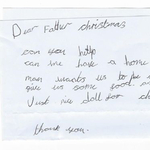 Dear Father christmas
can you help
can we have a home
man wants us to be
give us some food. and
Just one doll for
thank you.